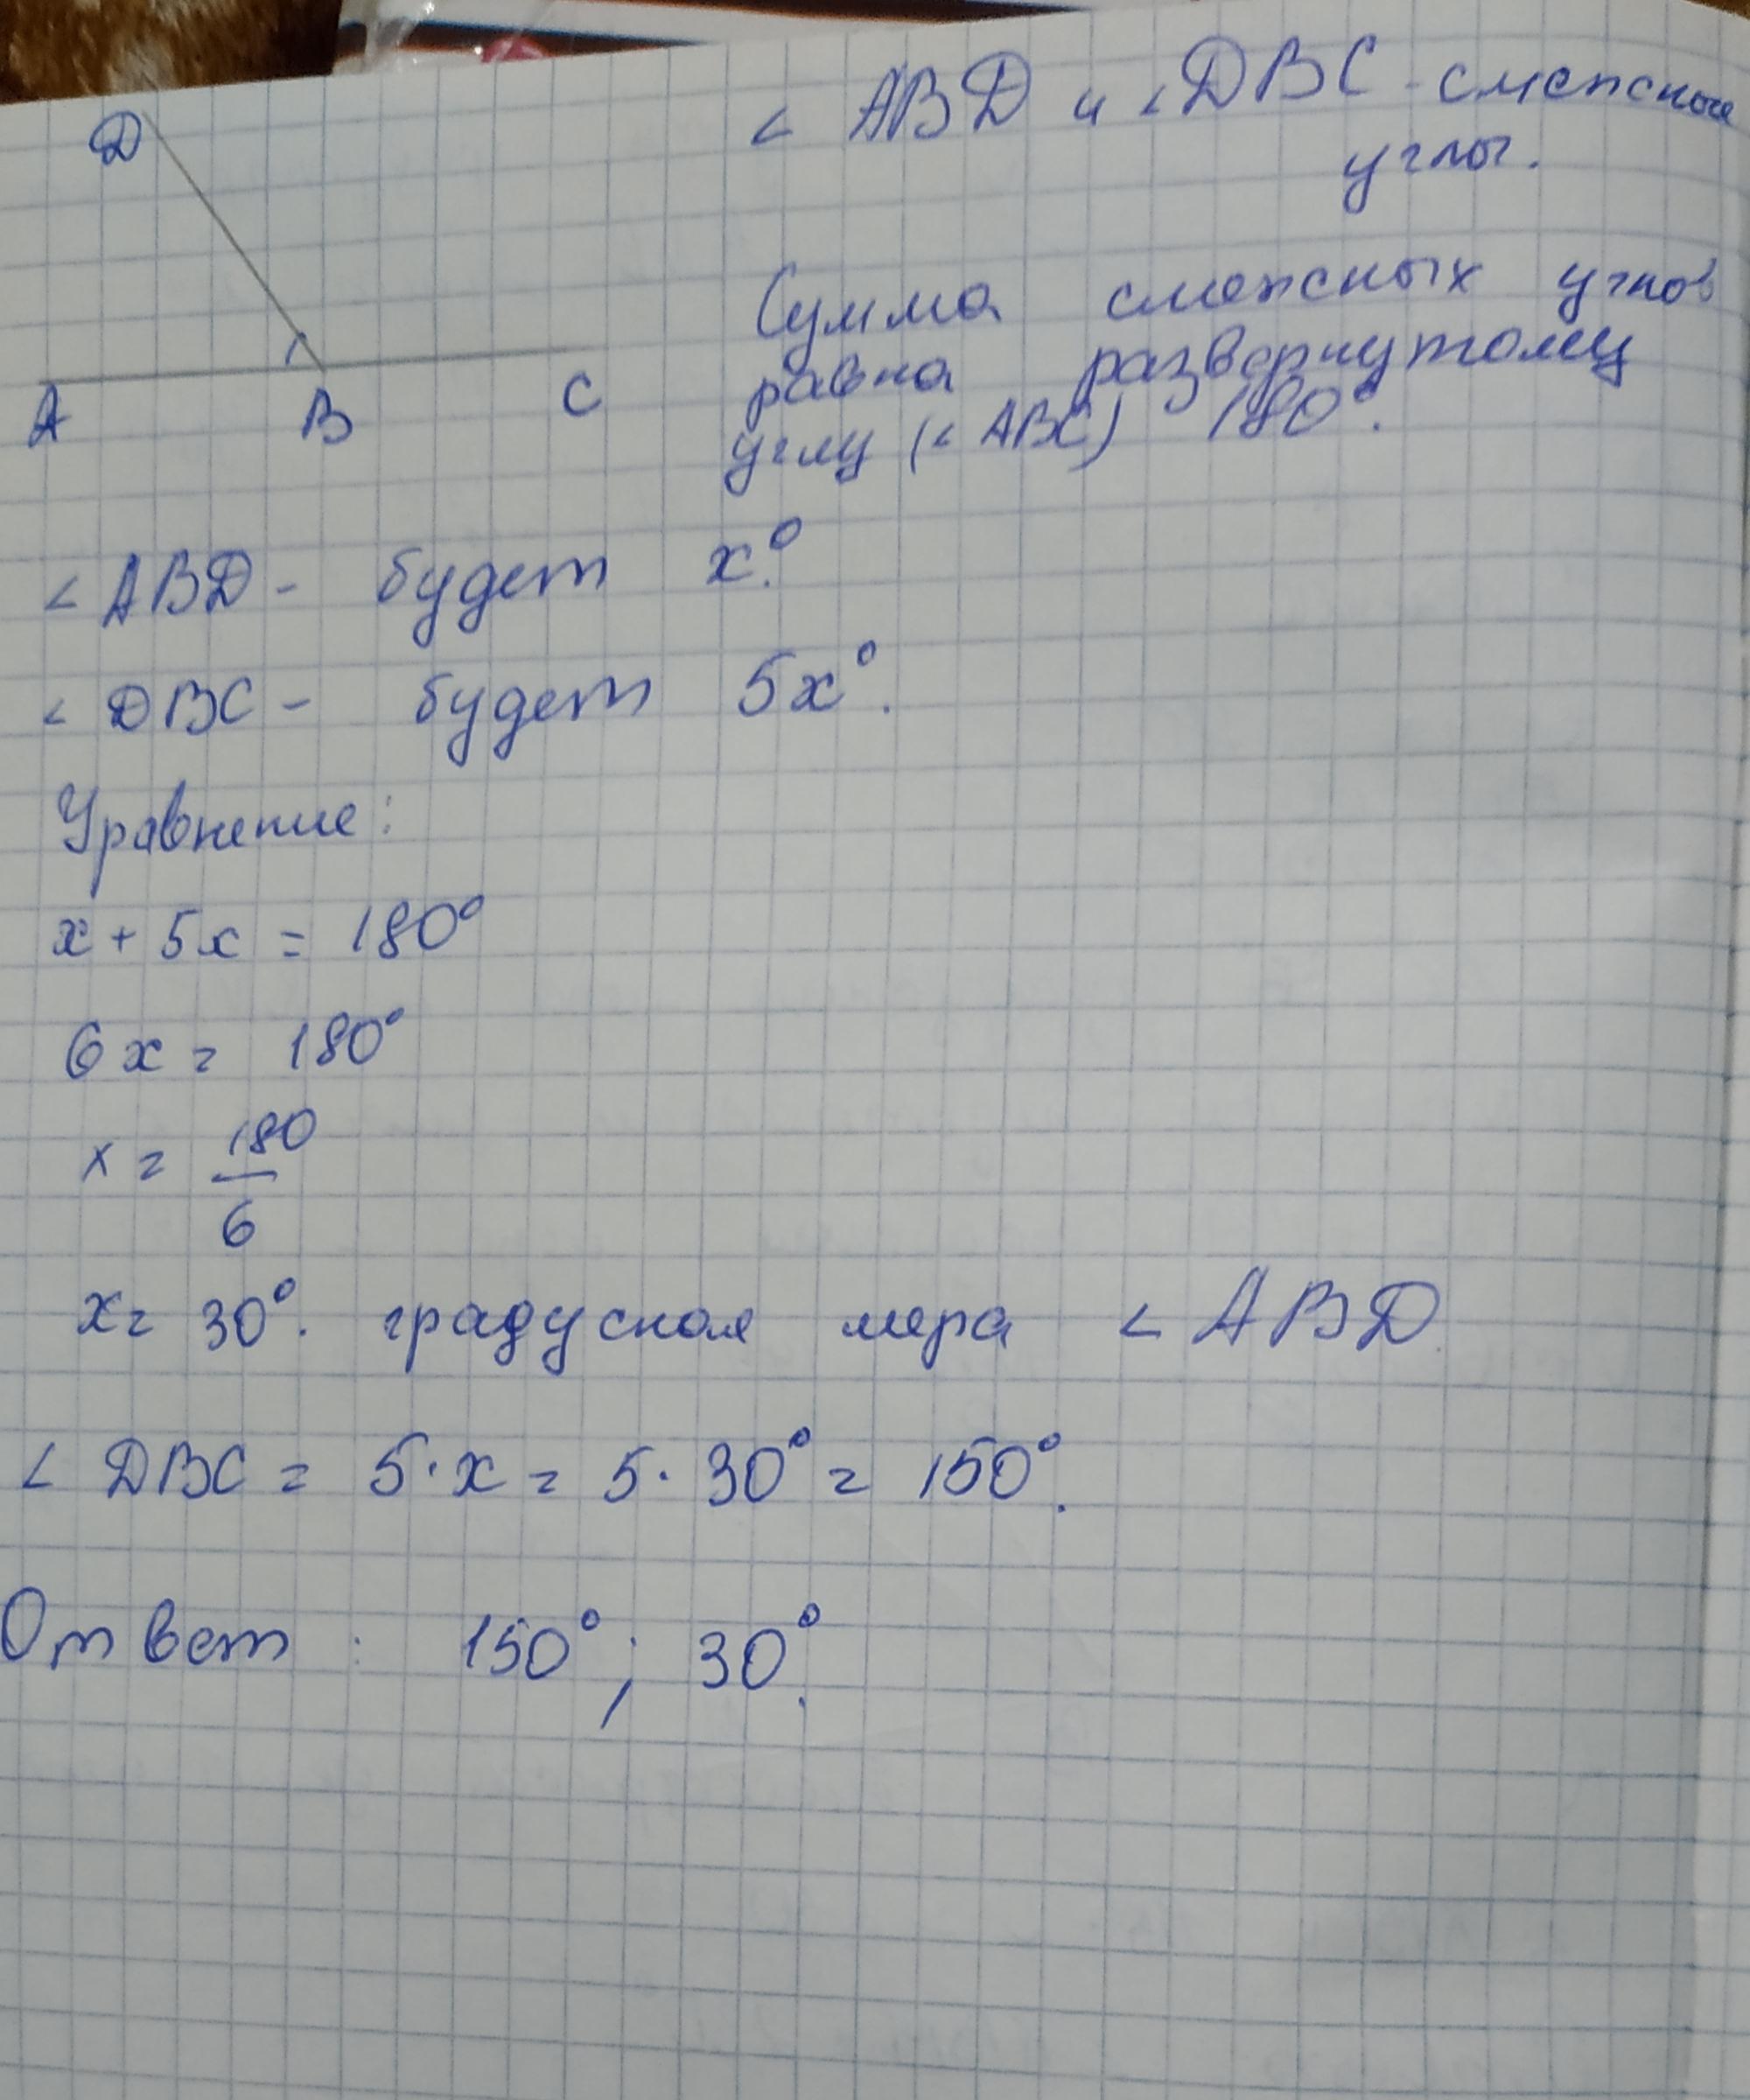 D
A
B
C
< ABD и < DBC - смежные
углы.
Сумма смежных углов
равна развернутому
углу (< ABC) 180°.
< ABD - будет x.°
< DBC - будет 5x°.
Уравнение:
x + 5x = 180°
6x = 180°
x = 180/6
x = 30°. градусная мера < ABD
< DBC = 5·x = 5·30° = 150°.
Ответ: 150°; 30°.